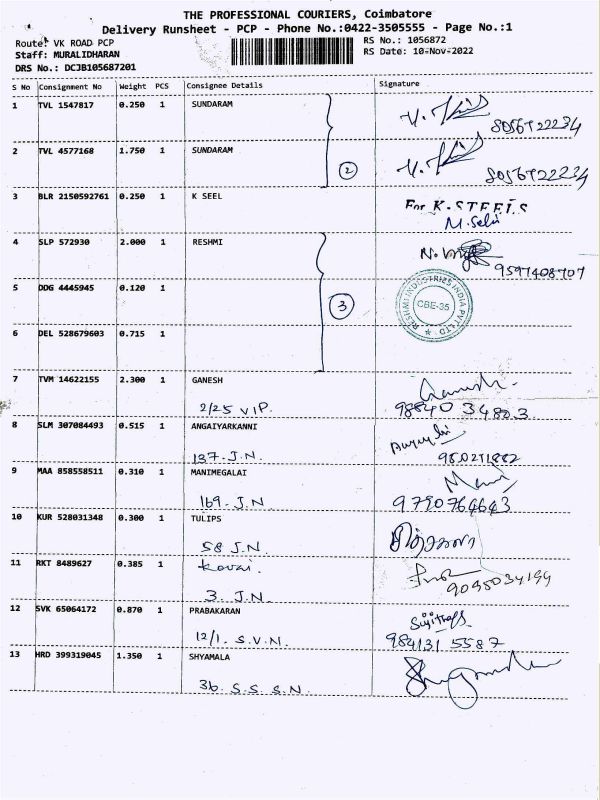 THE PROFESSIONAL COURIERS, Coimbatore
Delivery Runsheet - PCP - Phone No.:0422-3505555 - Page No.:1
Route: VK ROAD PCP
RS No.: 1056872
Staff: MURALIDHARAN
RS Date: 10-Nov-2022
DRS No.: DCJB105687201
S No Consignment No Weight PCS Consignee Details Signature
1 TVL 1547817 0.250 1 SUNDARAM
8056722234
2 TVL 4577168 1.750 1 SUNDARAM
2
8056722234
3 BLR 2150592761 0.250 1 K SEEL
For K.STEELS
M.Selvi
4 SLP 572930 2.000 1 RESHMI
9597408707
5 DDG 4445945 0.120 1
3
RESHMI INDUSTRIES INDIA PVT LTD
CBE-35
6 DEL 528679603 0.715 1
7 TVM 14622155 2.300 1 GANESH Ganesh.
2/25 V.I.P. 98840 34803
8 SLM 307084493 0.515 1 ANGAIYARKANNI
137. J.N.
9 MAA 858558511 0.310 1 MANIMEGALAI Mani
169. J.N 9790764643
10 KUR 528031348 0.300 1 TULIPS
58 J.N.
11 RKT 8489627 0.385 1 kovai.
3. J.N. 9095034199
12 SVK 65064172 0.870 1 PRABAKARAN
12/1. S.V.N. 984131 5587
13 HRD 399319045 1.350 1 SHYAMALA
36. S.S.S.N.